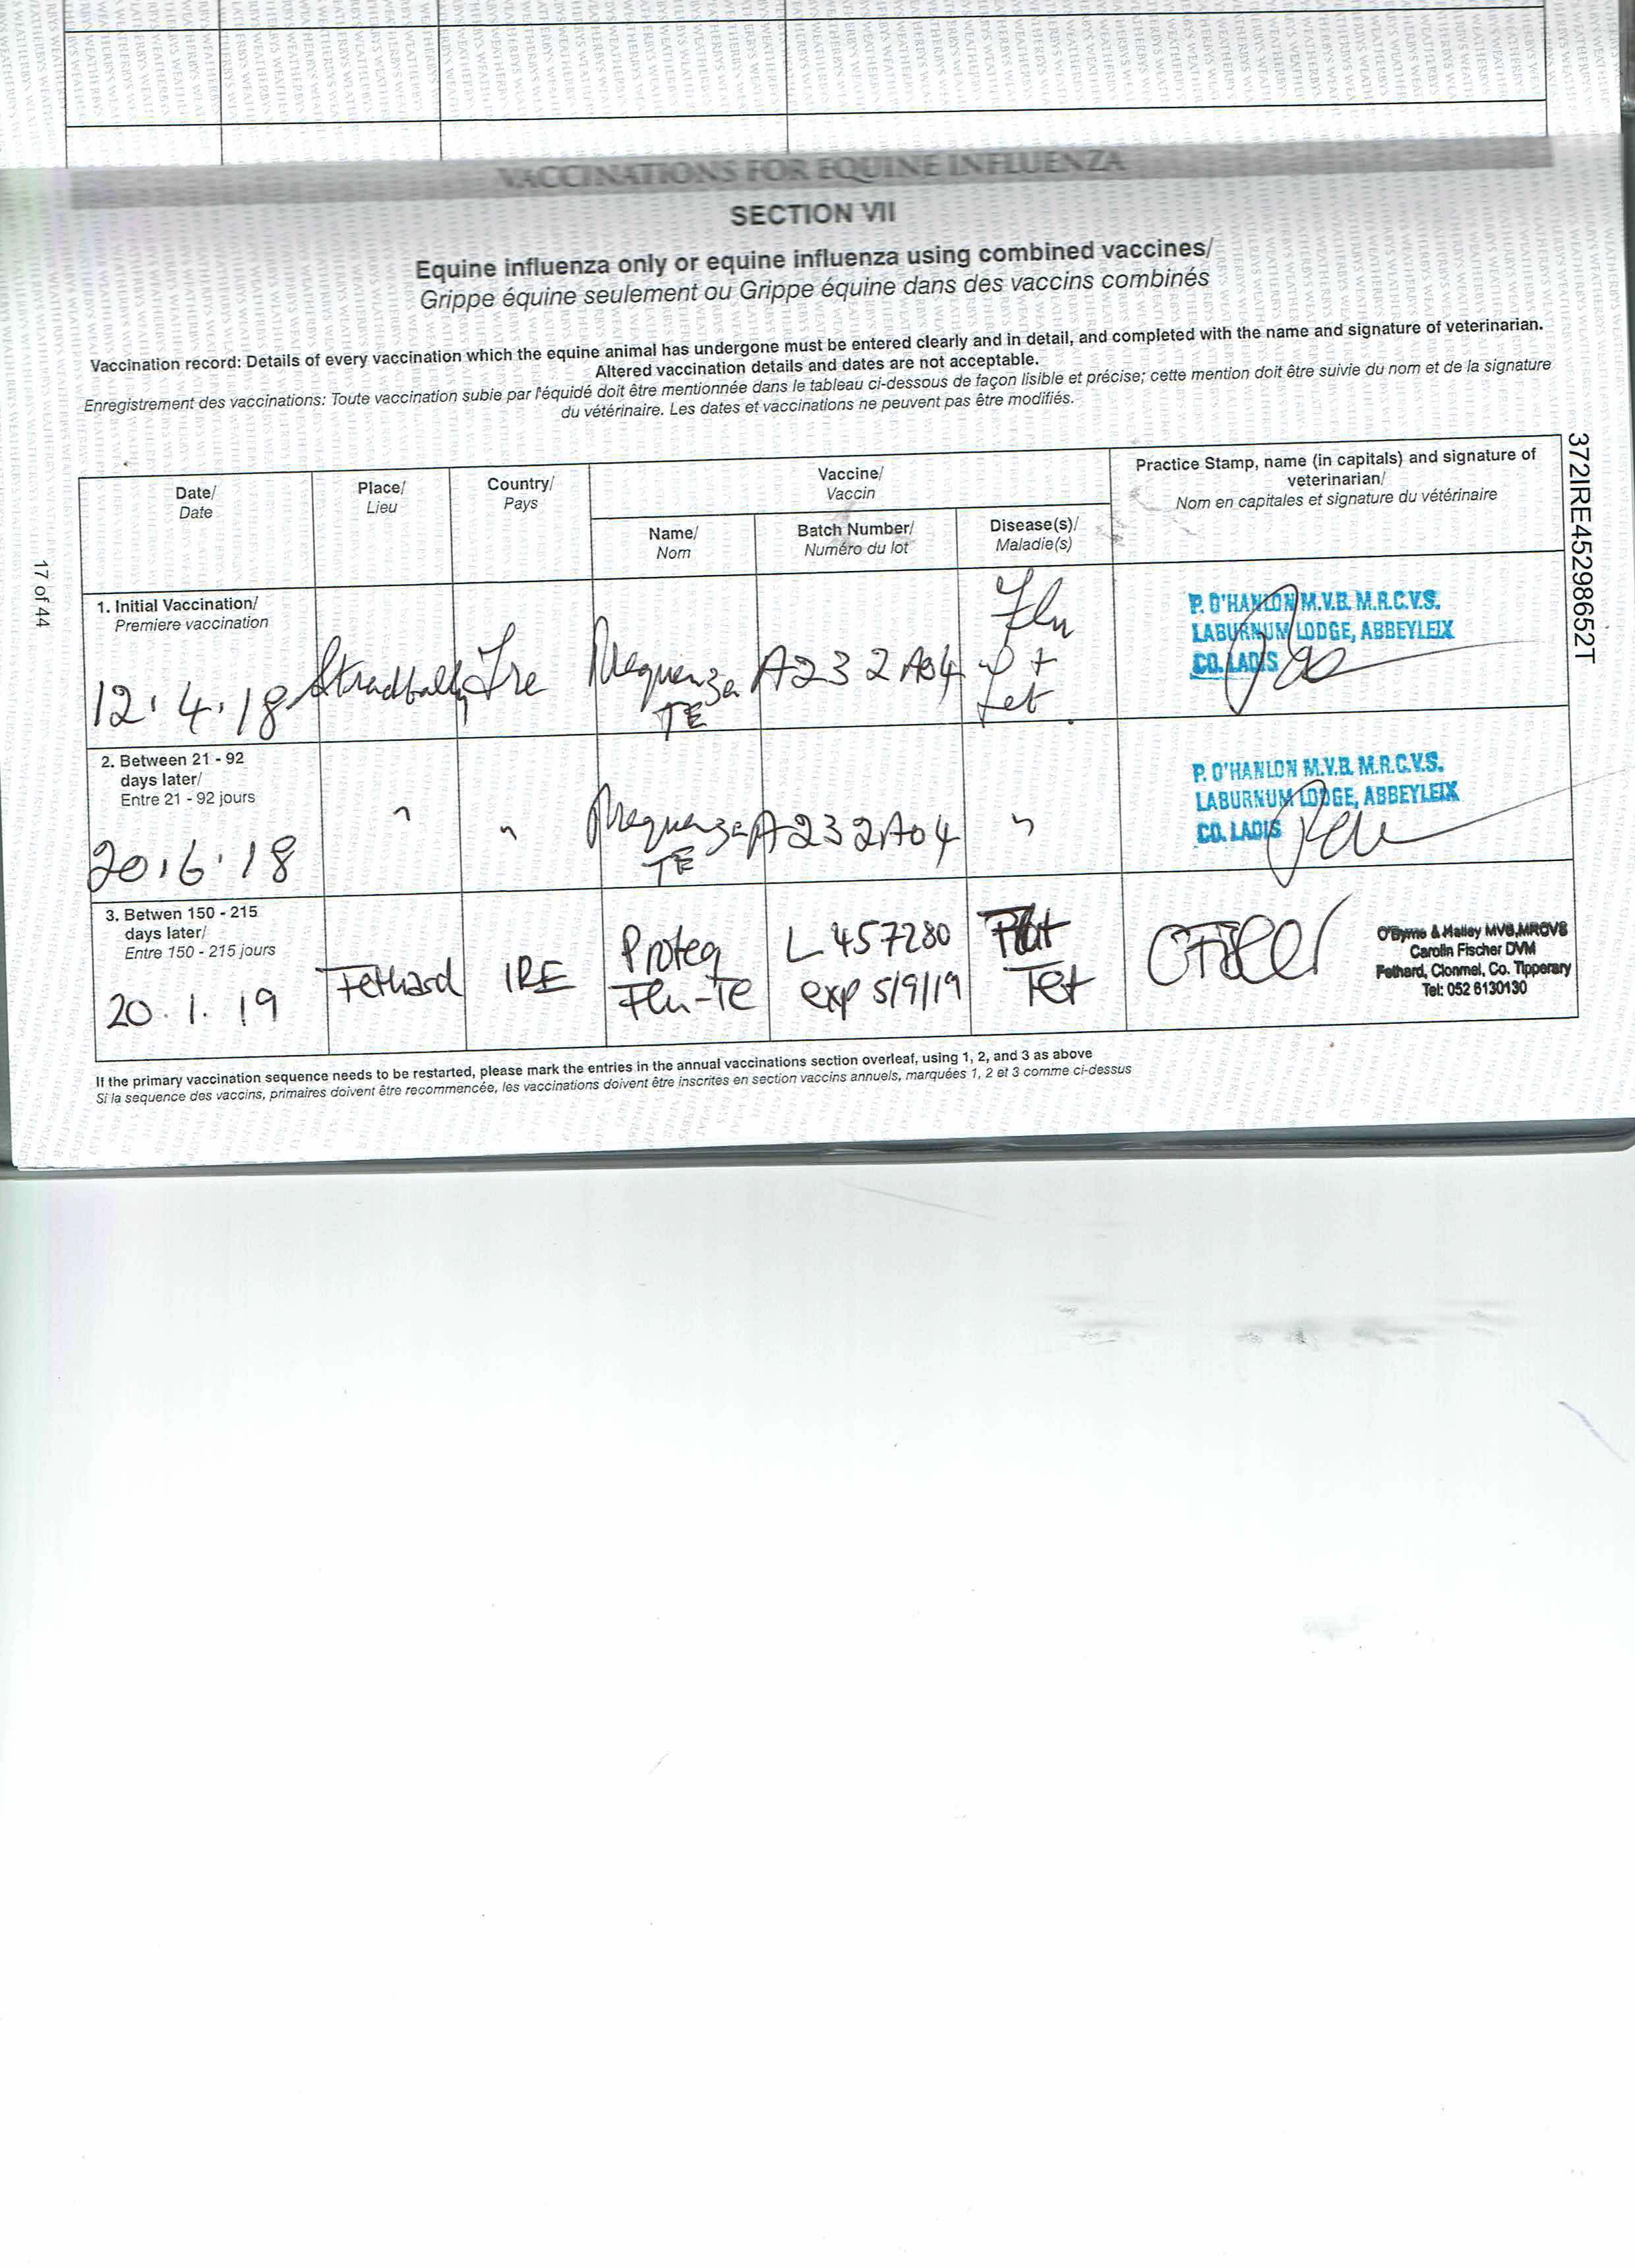 VACCINATIONS FOR EQUINE INFLUENZA
SECTION VII
Equine influenza only or equine influenza using combined vaccines/
Grippe équine seulement ou Grippe équine dans des vaccins combinés
Vaccination record: Details of every vaccination which the equine animal has undergone must be entered clearly and in detail, and completed with the name and signature of veterinarian.
Altered vaccination details and dates are not acceptable.
Enregistrement des vaccinations: Toute vaccination subie par l'équidé doit être mentionnée dans le tableau ci-dessous de façon lisible et précise; cette mention doit être suivie du nom et de la signature
du vétérinaire. Les dates et vaccinations ne peuvent pas être modifiés.
Date/
Date
Place/
Lieu
Country/
Pays
Vaccine/
Vaccin
Name/
Nom
Batch Number/
Numéro du lot
Disease(s)/
Maladie(s)
Practice Stamp, name (in capitals) and signature of
veterinarian/
Nom en capitales et signature du vétérinaire
1. Initial Vaccination/
Premiere vaccination
12.4.18
Stradbally
Ire
TE
Flu
+
Tet
P. O'HANLON M.V.B. M.R.C.V.S.
LABURNUM LODGE, ABBEYLEIX
CO. LAOIS
2. Between 21 - 92
days later/
Entre 21 - 92 jours
20.6.18
"
"
TE
A232A04
"
P. O'HANLON M.V.B. M.R.C.V.S.
LABURNUM LODGE, ABBEYLEIX
CO. LAOIS
3. Betwen 150 - 215
days later/
Entre 150 - 215 jours
20.1.19
Fethard
IRE
Proteq
Flu-TE
L457280
exp 5/9/19
Tet
O'Byrne & Halley MVB, MRCVS
Carolin Fischer DVM
Fethard, Clonmel, Co. Tipperary
Tel: 052 6130130
If the primary vaccination sequence needs to be restarted, please mark the entries in the annual vaccinations section overleaf, using 1, 2, and 3 as above
Si la sequence des vaccins, primaires doivent être recommencée, les vaccinations doivent être inscrites en section vaccins annuels, marquées 1, 2 et 3 comme ci-dessus
17 of 44
372IRE45298652T